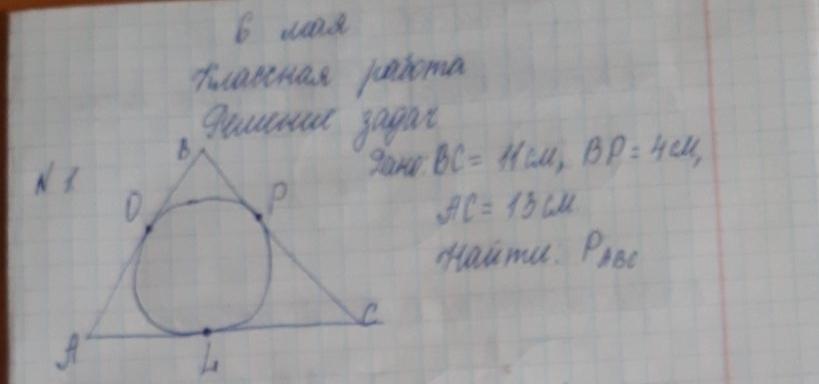 6 мая
Классная работа
Решение задач
N 1
Дано: BC = 11 см, BP = 4 см,
AC = 13 см
Найти: P ABC
B
O
P
A
L
C